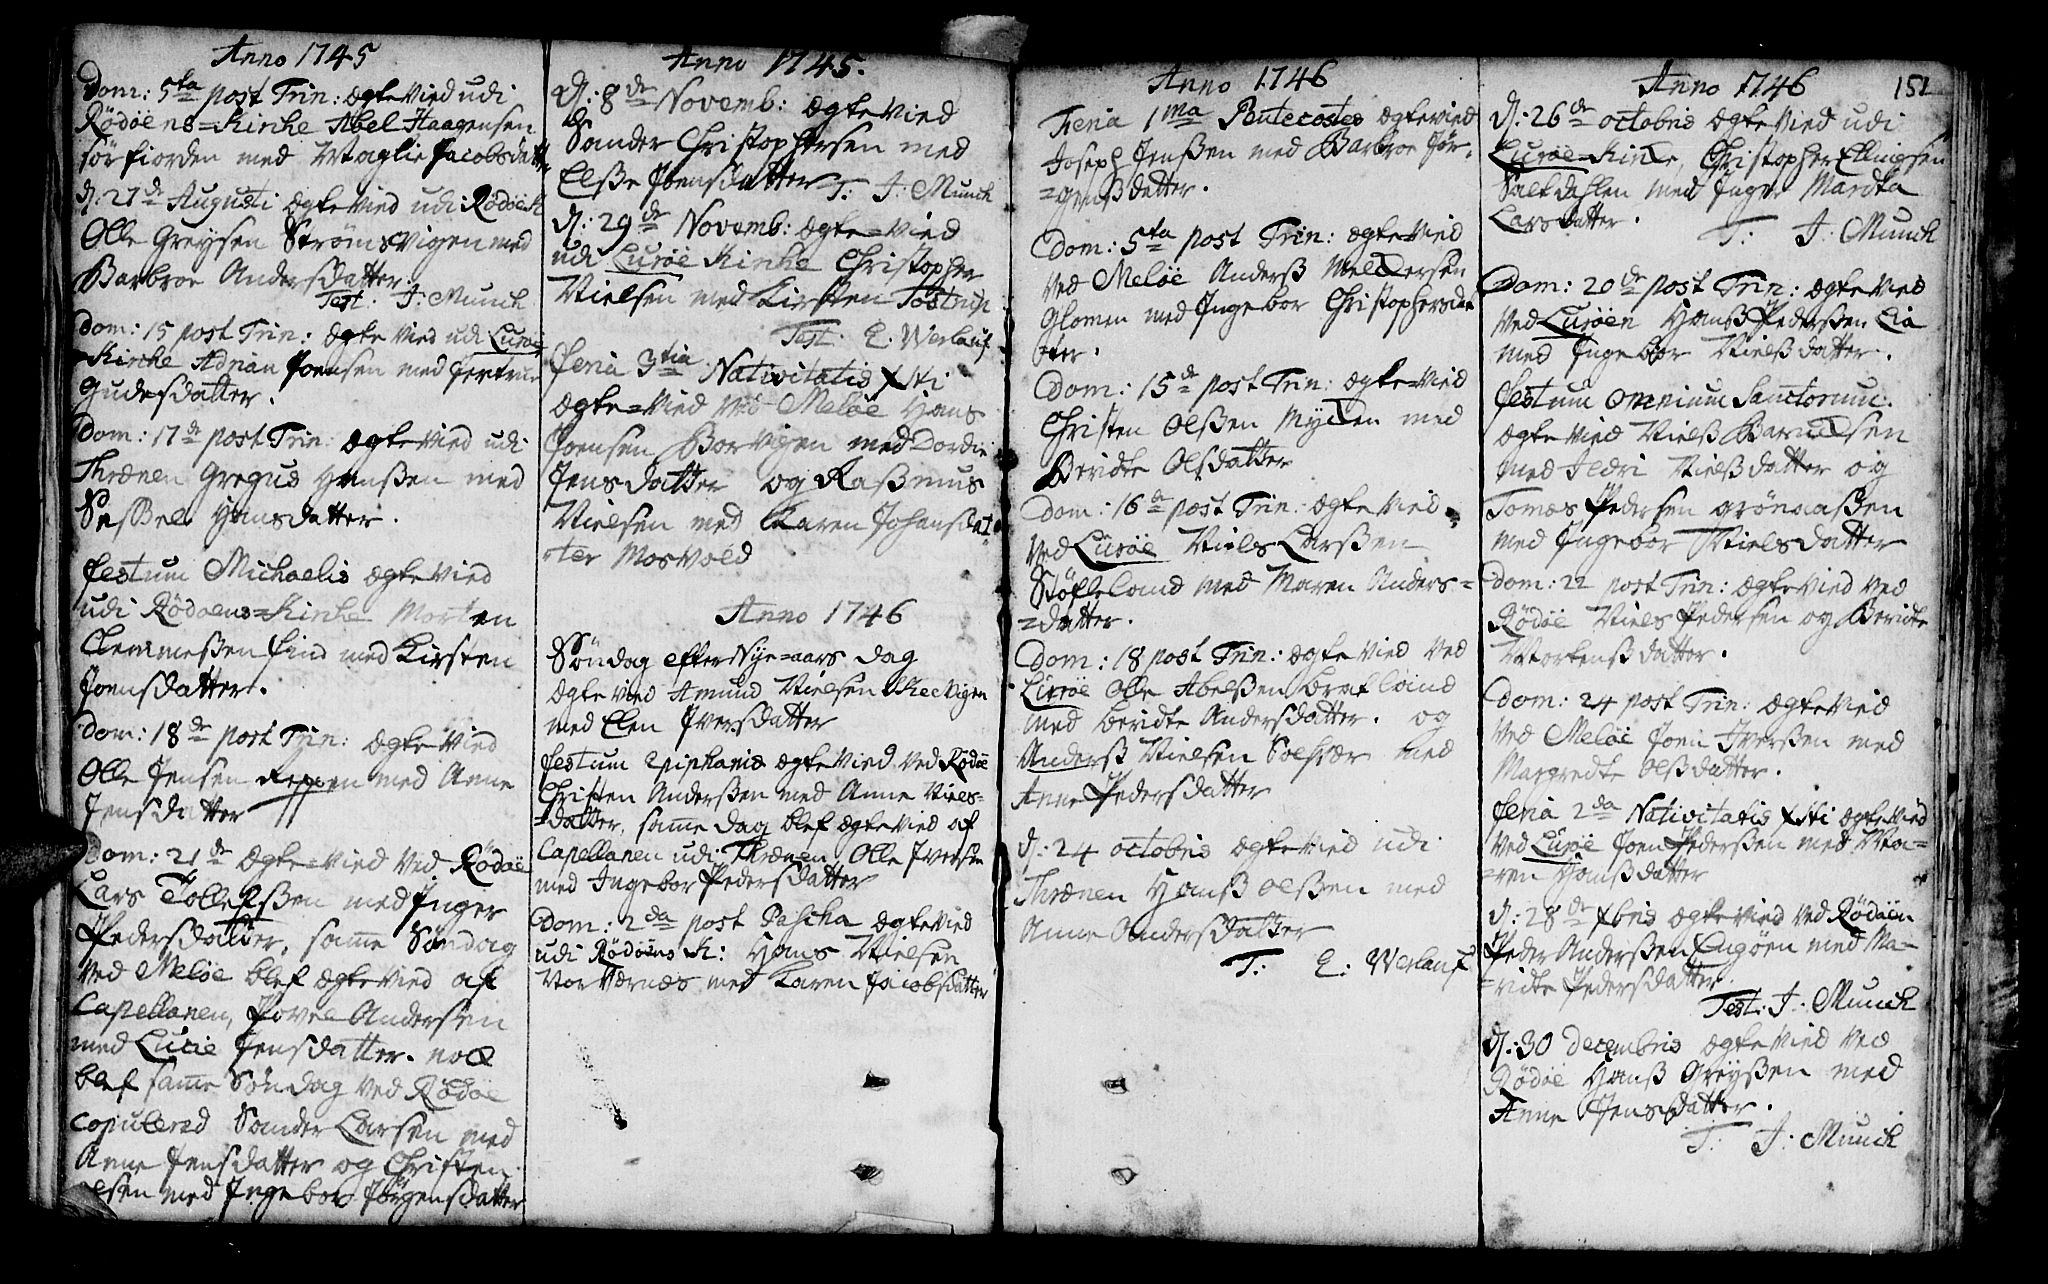 Anno 1745
Dom: 5ta post Trin: ægte vied udi
Rödöens=Kirke Abel Haagensen
sörfiorden med Maglie Jacobsdatt
d: 27de Augusti ægte vied udi Rödöe K
Olle Greysen Strömsvigen med
Barbroe Andersdatter.
Test. J: Munch
Dom: 15 post Trin: ægte vied udi Luröe
Kirche Adrian Joensen med Gertrue
Gudesdatter.
Dom: 17de post Trin: ægte vied udi
Thrænen Gregus Hanßen med
Seßel Hansdatter.
festum Michaelis ægte vied
udi Rödöens=Kirke Morten
Clemmeßen find med Kirsten
Joensdatter.
Dom: 18de post Trin: ægte vied
Olle Jensen Reppen med Anne
Jensdatter
Dom: 21de ægte=vied ved Rödöe
Lars Tollefßen med Inger
Pedersdatter, samme Söndag
ved Melöe blef ægte vied af
Capellanen, Povel Andersen
med Lucie Jensdatter. nock
blef samme Söndag ved Rödöe
copulered Sander Larsen med
Anne Jensdatter og Christen
olsen med Ingebor Jörgensdatter
Anno 1745.
d: 8de Novemb: ægte vied
Sander Christophersen med
Elße Joensdatter T: J: Munch
d: 29de Novemb: ægte=vied
udi Luröe Kirke Christopher
Nielsen med Kirsten Tostrup
Test. E. Werlauf
feria 3tia Nativitatis Xsti
ægte=vied ved Melöe Hans
Joensen Borvigen med Dordie
Jensdatter og Raßmus
Nielsen med Karen Johansdat
ter Mosvold
Anno 1746
Söndag efter Nye=aars dag
ægte vied Amund Nielsen Skeevigen
med Elen Iversdatter
festum Epiphanis ægte vied ved Rödöe
Christen Anderßen med Anne Niels=
=datter, samme dag blef ægte vied af
Capellanen udi Thrænen, Olle Iversen
med Ingebor Pedersdatter
Dom: 2da post Pascha ægte vied
udi Rödöens K: Hans Nielsen
Nor Værnæs med Karen Jacobsdatter
Anno 1746
Feria 1ma Pentecostes ægte vied
Joseph Jenßen med Barbroe Jör=
=genßdatter.
Dom: 5ta post Trin: ægte vied
ved Melöe Anderß Meldersen
Glomen med Ingebor Christophersda
tter.
Dom: 15de post Trin: ægte=vied
Christen Olßen Mycken med
Beridte Olsdatter
Dom: 16de post Trin: ægte vied
ved Luröe Niels Larßen
Stöfleland med Maren Anders=
=datter.
Dom: 18 post Trin: ægte vied ved
Luröe Olle Abelßen Brafland
med Beridte Andersdatter. og
Anderß Nielsen Solsvær med
Anne Pedersdatter
d: 24 octobris ægte vied udi
Thrænen Hanß Olßen med
Anne Andersdatter
T: E: Werlauf
Anno 1746
151
d: 26de octobris ægte vied udi
Luröe=Kirke, Christopher Ellingsen
Saltdahlen med Inger Marcka
Larsdatter.
T: J: Munch
Dom: 20de post Trin: ægte vied
ved Luröen Hanß Pederßen Lia
med Ingebor Nielßdatter.
festum omnium Sanctorum.
ægte vied Nielß Barucksen
med Ildri Nielßdatter og
Tomas Pedersen Grönaaßen
med Ingebor Nielsdatter
Dom: 22 post Trin: ægte vied ved
Rödöe Niels Pedersen og Beridte
Mortenßdatter.
Dom: 24 post Trin: ægte vied
ved Melöe Joen Iverßen med
Margredte Olßdatter.
feria 2da Nativitatis Xsti ægte vied
ved Luröe Joen Pederßen med Ma=
=ren Hanßdatter
d: 28de Xbris ægte vied ved Rödöen
Peder Anderßen Engöen med Ma=
=ridte Pedersdatter
Test: J: Munch
d: 30 decembris ægte vied ved
Rödöe Hanß Greyßen med
Anne Jensdatter.
T: J: Munch